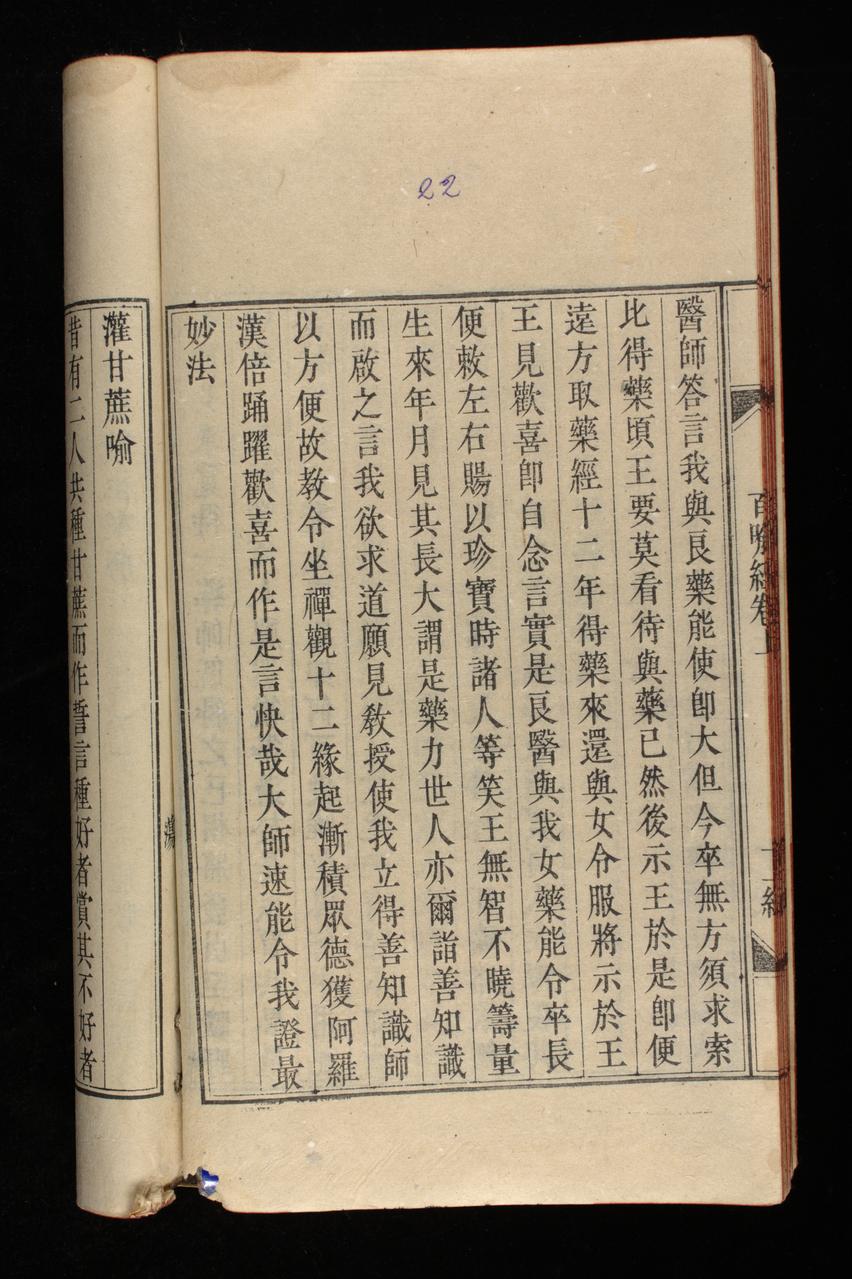 22
百喻經卷上
醫師答言我與良藥能使卽大但今卒無方須求索
比得藥頃王要莫看待與藥已然後示王於是卽便
遠方取藥經十二年得藥來還與女令服將示於王
王見歡喜卽自念言實是良醫與我女藥能令卒長
便敕左右賜以珍寶時諸人等笑王無智不曉籌量
生來年月見其長大謂是藥力世人亦爾詣善知識
而啟之言我欲求道願見教授使我立得善知識師
以方便故教令坐禪觀十二緣起漸積眾德獲阿羅
漢倍踊躍歡喜而作是言快哉大師速能令我證最
妙法
灌甘蔗喻
昔有二人共種甘蔗而作誓言種好者賞其不好者